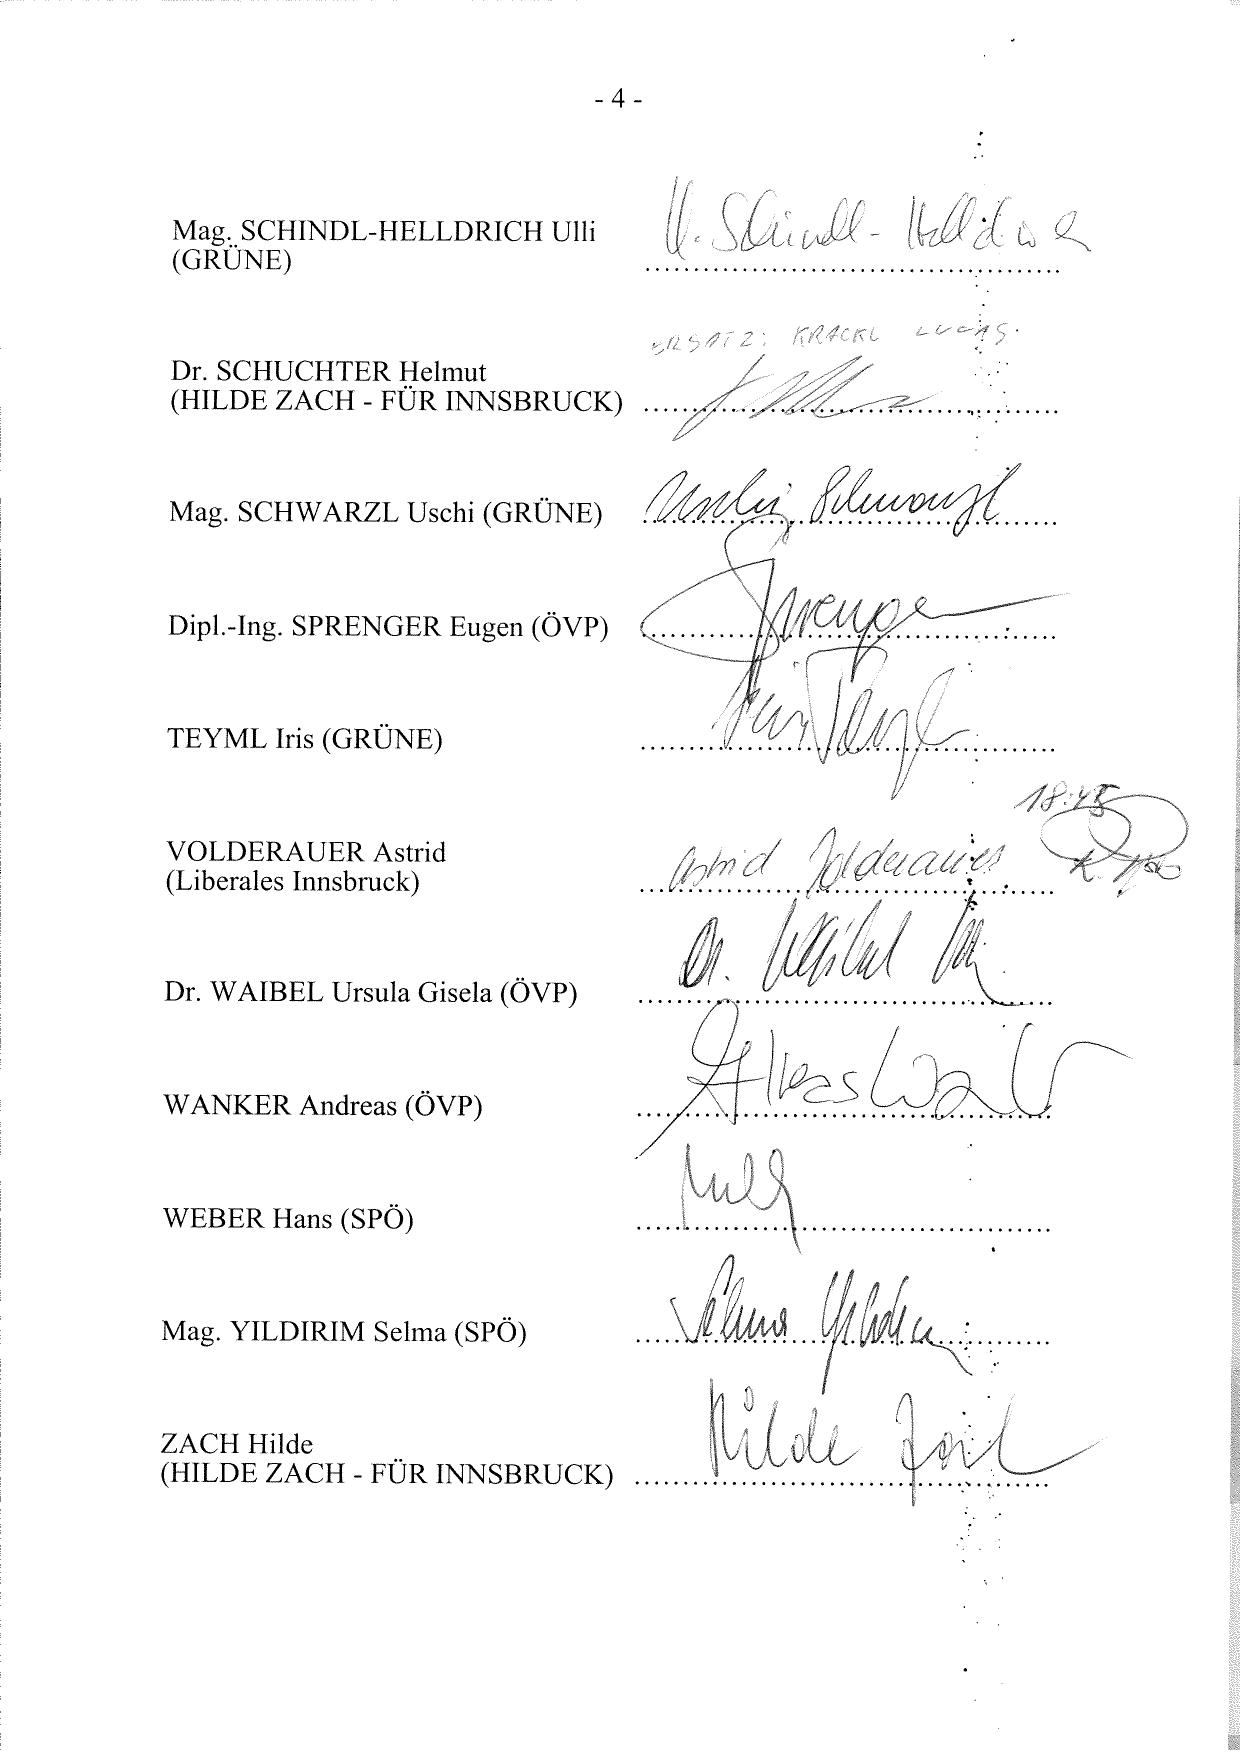 - 4 -
Mag. SCHINDL-HELLDRICH Ulli
(GRÜNE)
U. Schindl-Helldrich
ERSATZ: KRACKL LUCAS.
Dr. SCHUCHTER Helmut
(HILDE ZACH - FÜR INNSBRUCK)
Mag. SCHWARZL Uschi (GRÜNE)
Uschi Schwarzl
Dipl.-Ing. SPRENGER Eugen (ÖVP)
Sprenger
TEYML Iris (GRÜNE)
Iris Teyml
18:45
VOLDERAUER Astrid
(Liberales Innsbruck)
Astrid Volderauer
Dr. WAIBEL Ursula Gisela (ÖVP)
Dr. Waibel
WANKER Andreas (ÖVP)
Andreas Wanker
WEBER Hans (SPÖ)
Mag. YILDIRIM Selma (SPÖ)
Selma Yildirim
ZACH Hilde
(HILDE ZACH - FÜR INNSBRUCK)
Hilde Zach